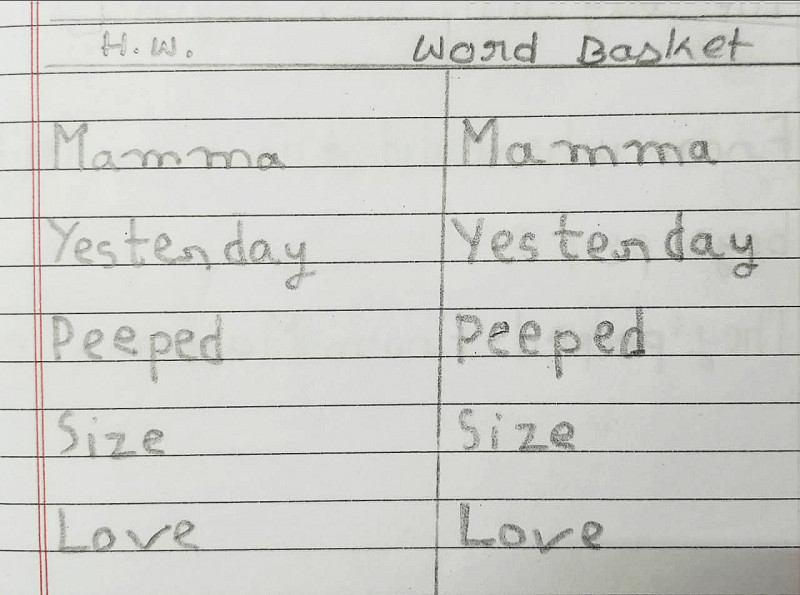 H.W. Word Basket
Mamma Mamma
Yesterday Yesterday
Peeped Peeped
Size Size
Love Love